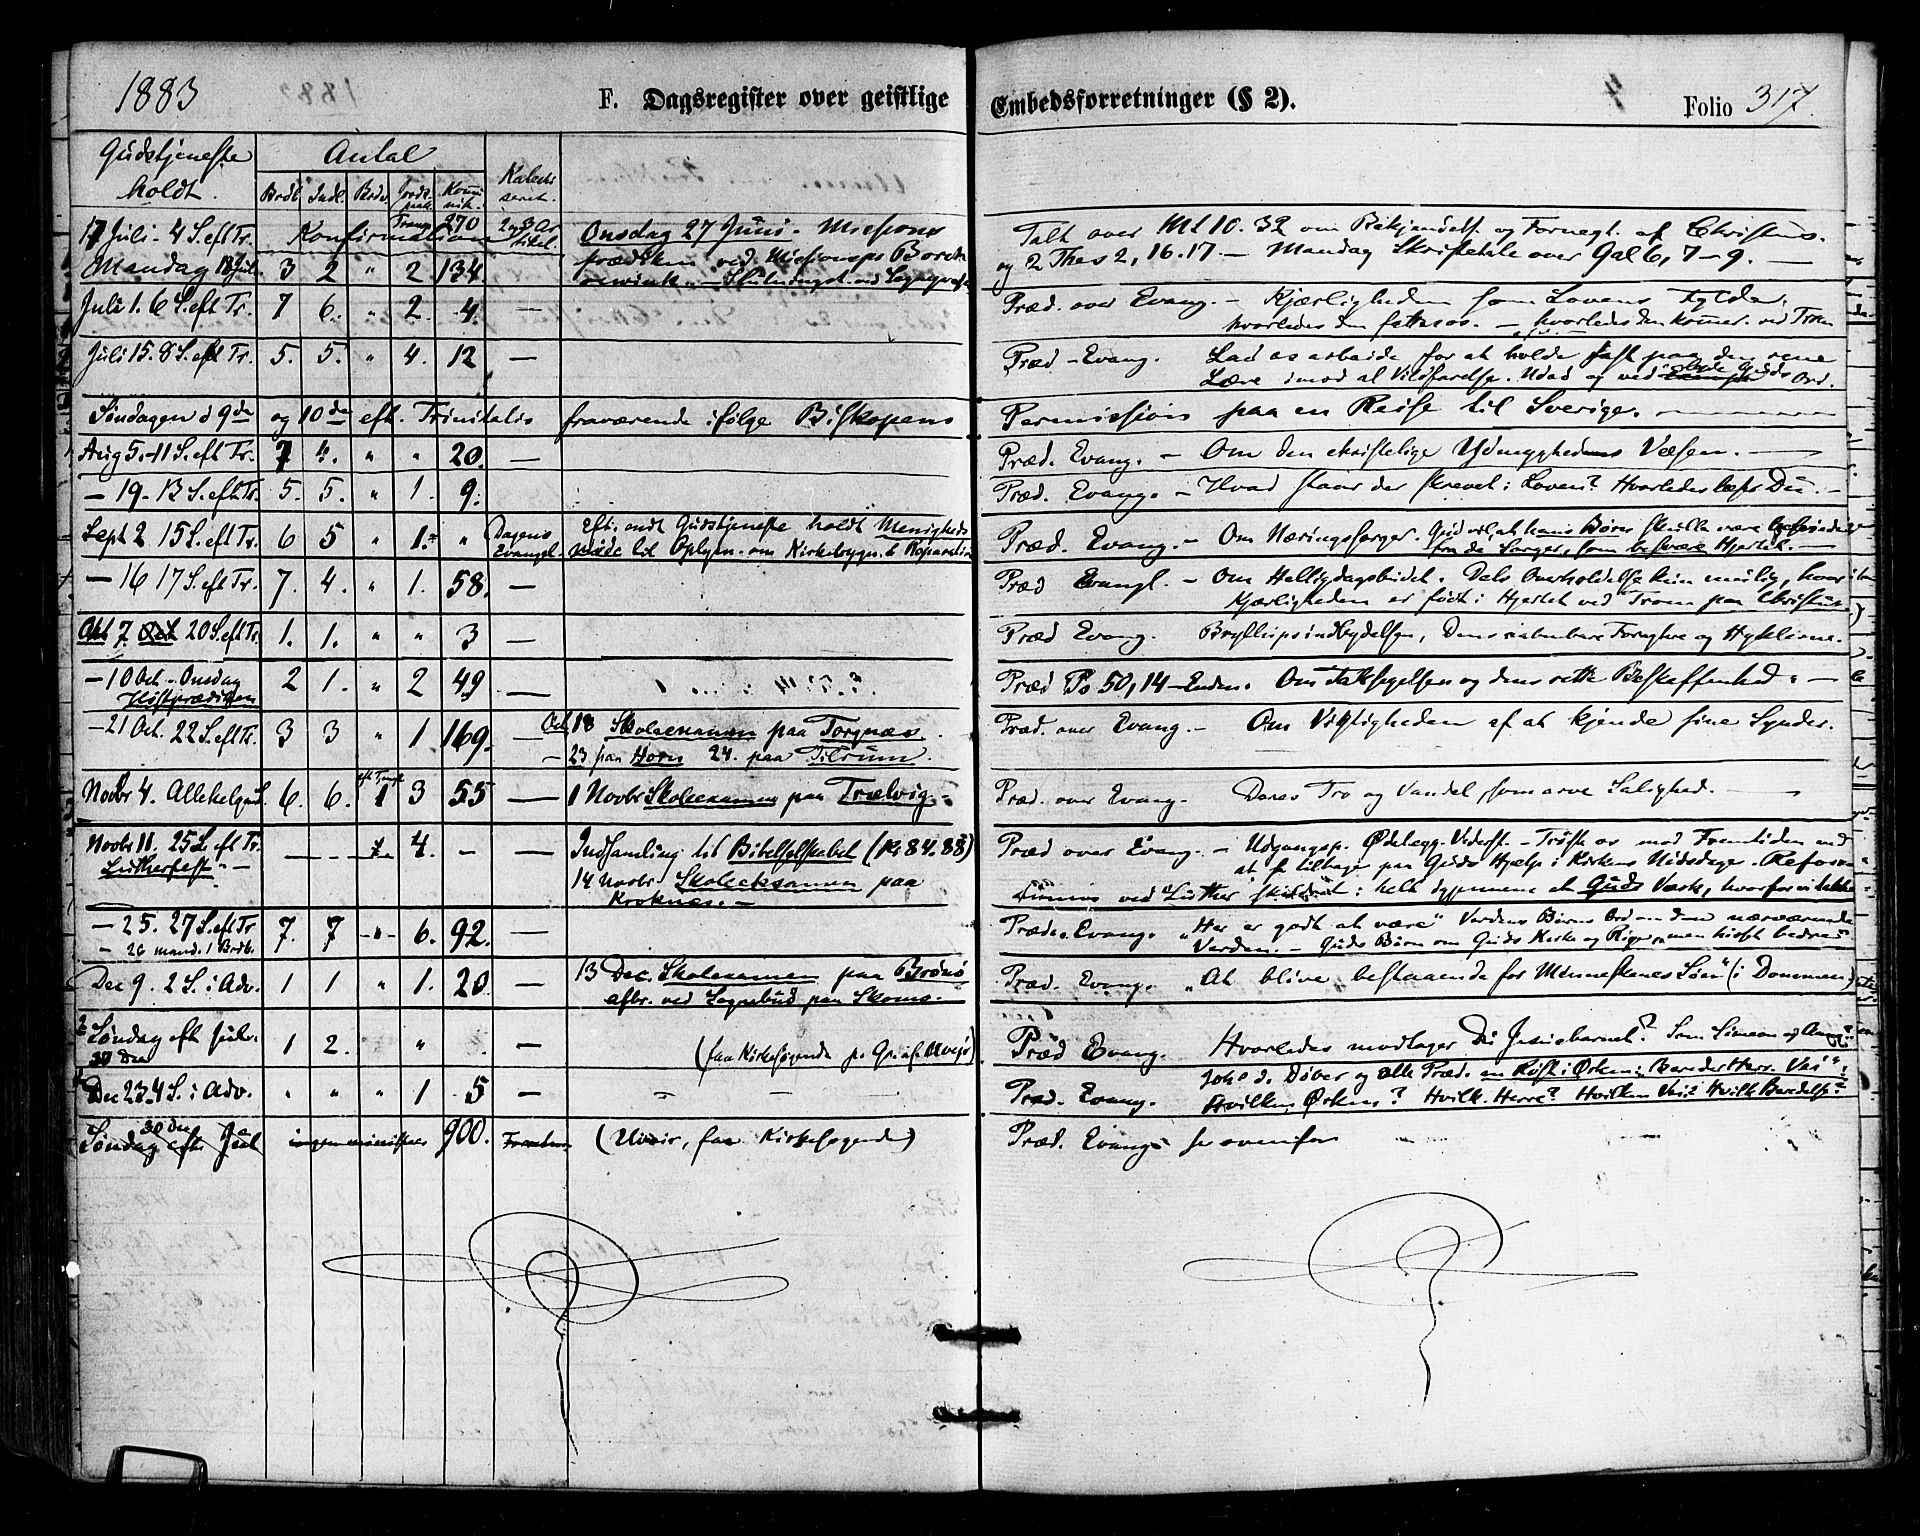 1883
F. Dagsregister over geistlige Embedsforretninger (§ 2).
Folio 317.
Gudstjeneste holdt.
Antal
Brdb. Indl. Bedv.
Komunik.
17 Juli - 4 S. eft Tr. Konfirmation 270
Onsdag 27 Juni. Missions
Talt over Mt 10. 32 om Bekjendels. og Fornegt. af Christus.
Mandag 18 Juli 3 2 " 2 134.
prædiken ved Missionspr
og 2 Thes 2, 16. 17. — Mandag Skriftetale over Gal 6, 7-9. —
Juli 1. 6 S. eft Tr. 7 6. " 2. 4. —
Præd. over Evang. - Kjærligheden som Lovens Fylde.
hvorledes den fattes os. — hvorledes den kommer. ved Troen
Juli 15. 8 S. eft Tr. 5. 5. " 4. 12 —
Præd - Evang. Lad os arbeide for at holde fast paa den rene
Lære imod al Vildfarelse. Udad og ved Guds Ord.
Søndagen d 9de og 10de eft. Trinitatis fraværende ifølge Biskopens
Permission paa en Reise til Sverige.
Aug 5. 11 S. eft Tr. 7 4. " " 20. —
Præd. Evang. - Om den christelige Ydmygheds Væsen. —
- 19. 13 S. eft Tr. 5. 5. " 1. 9. —
Præd. Evang. - Hvad staar der skrevet i Loven? Hvorledes læser Du. -
Sept 2 15 S. eft Tr. 6 5 " 1. " Dagens Evangl.
Eft. endt Gudstjeneste holdt Menigheds
møde til Oplysn. om Kirkebygn. & Reparation
Præd. Evang. - Om Næringssorger. Gud vil, at hans Børn skulle være
fra de Sorger, som besvære Hjertet. —
- 16 17 S. eft Tr. 7. 4. " 1. 58. —
Præd Evangl. - Om Helligdagsbudet. Dets Overholdelse kun mulig, hvor
Kjærligheden er født i Hjertet ved Troen paa Christus.
Okt 7. 20 S. eft Tr. 1. 1. " " 3 —
Præd Evang. Bryllupsindbydelsen, og Hyklerne.
- 10 Oct - Onsdag Høstprædiken 2 1. " 2 49 —
Præd Ps 50, 14 - Enden. Om Taksigelsen og dens rette Beskaffenhed. —
- 21 Oct. 22 S. eft Tr. 3 3 " 1 169. —
Oct. 18 Skoleexamen paa Torgnæs.
- 23 paa Horn 24. paa Tilrum.
Præd. over Evang. - Om Vigtigheden af at kjende sine Synder.
Novbr 4. Allehelgens. 6. 6. 1 3 55 —
1 Novbr Skoleexamen paa Trælvig. -
Præd. over Evang. Deres Tro og Vandel, som arve Salighed. —
Novbr 11. 25 S. eft Tr. Lutherfest — 4. —
Indsamling til Bibelselskabet (Kr 84. 88)
14 Novbr Skoleeksamen paa
Kroknæs. —
Præd over Evang. - Udgangsp. Ødelægg. Vederst. - Trøste os mod Fremtiden ved
at tilbage paa Guds Hjælp i Kirkens Nødsdage. Reforma-
tionens ved Luther skildret i helt et Guds Værk, hvorfor vi takke
- 25. 27 S. eft Tr. 7. 7 - " - 6. 92. —
- 26 mand. 1 Brdb.
Præd. Evang. "Her er godt at være" Verdens Børns Ord om den nærværende
Verden. - Guds Børn om Guds Kirke og Rige, men hisset bedre
Dec 9. 2 S. i Adv. 1 1 " 1. 20 —
13 Dec. Skoleexamen paa Brønø
afbr. ved Sognebud paa Skomo.
Præd. Evang. "At blive bestaaende for Menneskenes Søn" (i Dommen)
Søndag eft Jul. 30 Dec 1 2. " . —
(faa Kirkesøgende
Præd Evang. Hvorledes modtager Du Jesusbarnet? Som Simeon og Anna?
Dec 23. 4 S. i Adv. " " " 1 5 —
Præd. Evang. Johs d. Døber og alle Præd. en Røst i Ørken: Bereder Herr. Vei".
Hvilken Ørken? Hvilk. Herre? Hvilken Vei? Hvilk Beredelse?
30 Dec
Søndag efter Jul ingen ministver 900.
(Uveir, faa Kirkesøgende)
Præd. Evang. se ovenfor